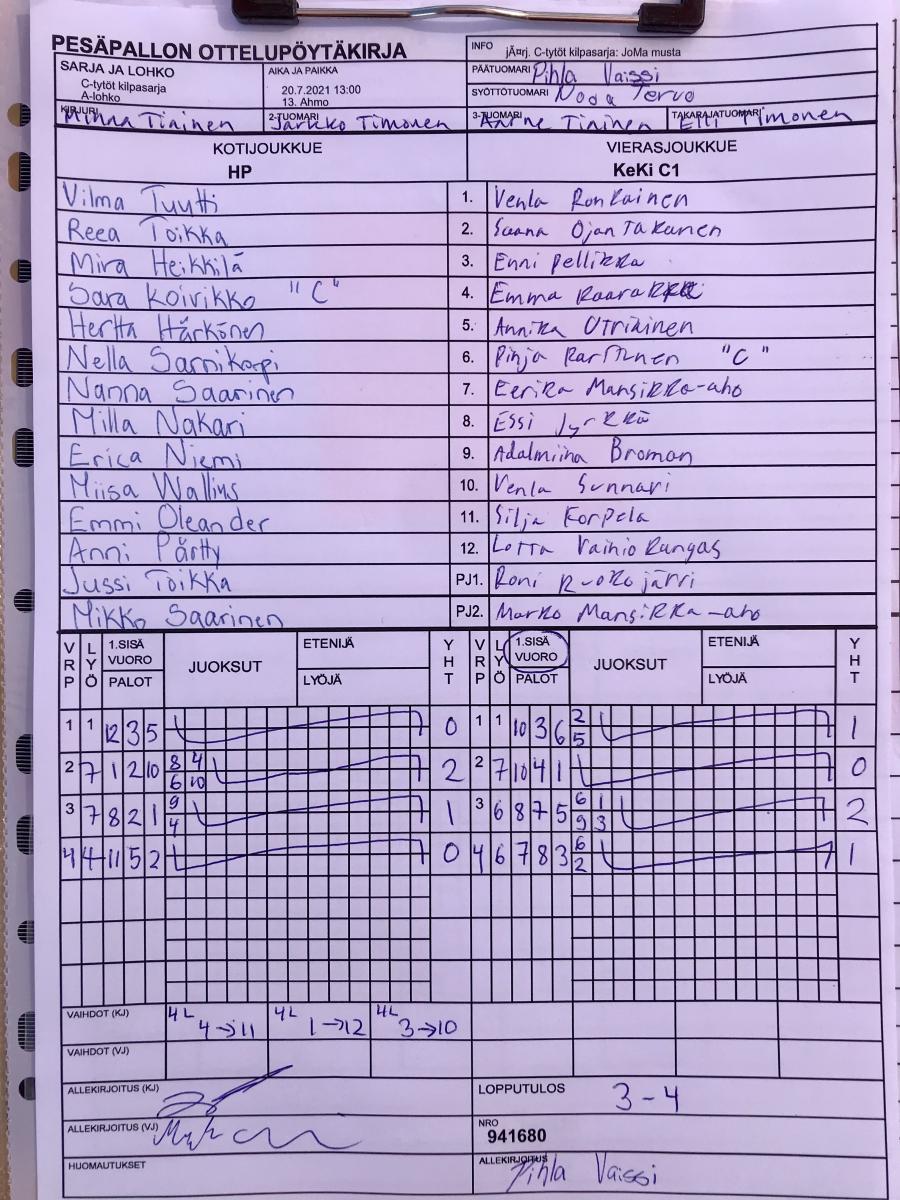 PESÄPALLON OTTELUPÖYTÄKIRJA
INFO jÃ¤rj. C-tytöt kilpasarja: JoMa musta
SARJA JA LOHKO
C-tytöt kilpasarja
A-lohko
AIKA JA PAIKKA
20.7.2021 13:00
13. Ahmo
PÄÄTUOMARI Pihla Vaissi
SYÖTTÖTUOMARI Noda Tervo
KIRJURI Minna Tiainen
2-TUOMARI Jarkko Timonen
3-TUOMARI Aarne Tiainen
TAKARAJATUOMARI Elli Timonen
KOTIJOUKKUE VIERASJOUKKUE
HP KeKi C1
Vilma Tuutti 1. Venla Ronkainen
Reea Toikka 2. Saana Ojantakanen
Mira Heikkilä 3. Enni Pellikka
Sara Koivikko "C" 4. Emma
Hertta Härkönen 5. Annika Utriainen
Nella Sarnikorpi 6. Pinja Karttunen "C"
Nanna Saarinen 7. Eerika Mansikka-aho
Milla Nakari 8. Essi Jyrkkä
Erica Niemi 9. Adalmiina Broman
Miisa Wallius 10. Venla Sunnari
Emmi Oleander 11. Silja Korpela
Anni Pärtty 12. Lotta Vainiokangas
Jussi Toikka PJ1. Roni Ruokojärvi
Mikko Saarinen PJ2. Marko Mansikka-aho
VRP LYÖ 1.SISÄ VUORO PALOT JUOKSUT ETENIJÄ LYÖJÄ YHT VRP LYÖ 1.SISÄ VUORO PALOT JUOKSUT ETENIJÄ LYÖJÄ YHT
1 1 12 3 5 0 1 1 10 3 6 2 5 1
2 7 1 2 10 8 4 6 10 2 2 7 10 4 1 0
3 7 8 2 1 9 4 1 3 6 8 7 5 6 1 9 3 2
4 4 11 5 2 0 4 6 7 8 3 6 2 1
VAIHDOT (KJ) 4L 4→11 4L 1→12 4L 3→10
VAIHDOT (VJ)
ALLEKIRJOITUS (KJ)
LOPPUTULOS 3-4
ALLEKIRJOITUS (VJ)
NRO
941680
HUOMAUTUKSET
ALLEKIRJOITUS Pihla Vaissi